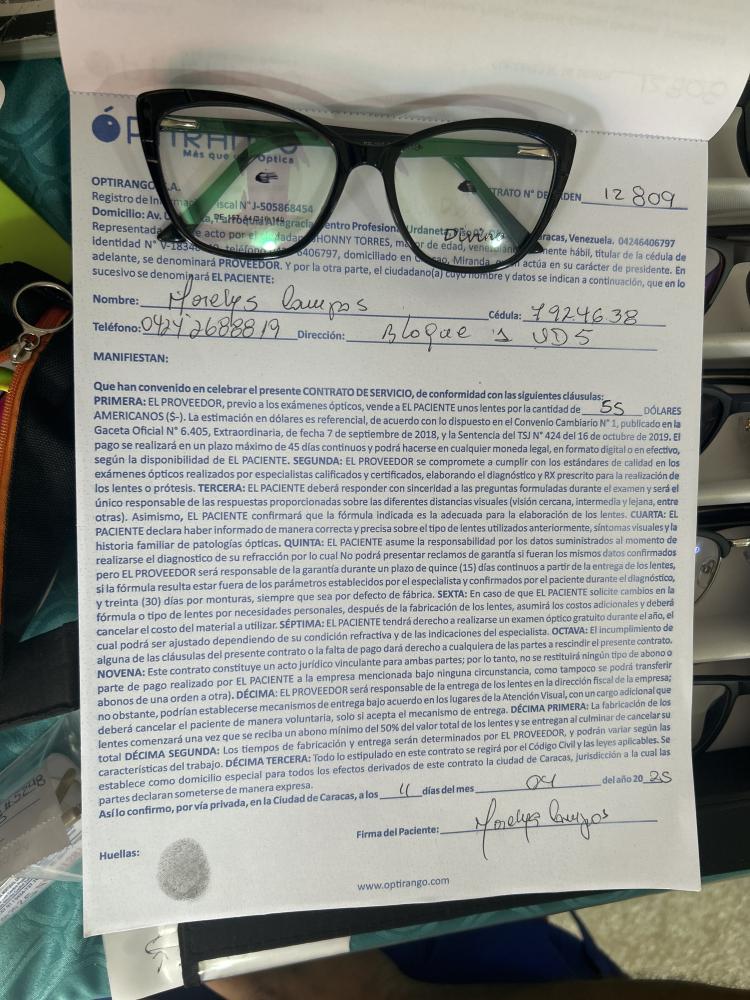 12 809
ÓPTIRANGO
Más que Optica
OPTIRANGO C.A. CONTRATO N° DE ORDEN 12 809
Registro de Información Fiscal N°J-505868454
Domicilio: Av. Parroquia Altagracia Centro Profesional Urdaneta Caracas, Venezuela. 04246406797
Representada acto por el ciudadano JHONNY TORRES, mayor de edad, hábil, titular de la cédula de
identidad N° teléfono 6406797, domiciliado en Miranda, actúa en su carácter de presidente. En
adelante, se denominará PROVEEDOR. Y por la otra parte, el ciudadano(a) cuyo nombre y datos se indican a continuación, que en lo
sucesivo se denominará EL PACIENTE:
Nombre: Morelys Campos Cédula: 7924638
Teléfono: 0424 2688819 Dirección: Bloque 1 UD5
MANIFIESTAN:
Que han convenido en celebrar el presente CONTRATO DE SERVICIO, de conformidad con las siguientes cláusulas:
PRIMERA: EL PROVEEDOR, previo a los exámenes ópticos, vende a EL PACIENTE unos lentes por la cantidad de 55 DÓLARES
AMERICANOS ($-). La estimación en dólares es referencial, de acuerdo con lo dispuesto en el Convenio Cambiario N° 1, publicado en la
Gaceta Oficial N° 6.405, Extraordinaria, de fecha 7 de septiembre de 2018, y la Sentencia del TSJ N° 424 del 16 de octubre de 2019. El
pago se realizará en un plazo máximo de 45 días continuos y podrá hacerse en cualquier moneda legal, en formato digital o en efectivo,
según la disponibilidad de EL PACIENTE. SEGUNDA: EL PROVEEDOR se compromete a cumplir con los estándares de calidad en los
exámenes ópticos realizados por especialistas calificados y certificados, elaborando el diagnóstico y RX prescrito para la realización de
los lentes o prótesis. TERCERA: EL PACIENTE deberá responder con sinceridad a las preguntas formuladas durante el examen y será el
único responsable de las respuestas proporcionadas sobre las diferentes distancias visuales (visión cercana, intermedia y lejana, entre
otras). Asimismo, EL PACIENTE confirmará que la fórmula indicada es la adecuada para la elaboración de los lentes. CUARTA: EL
PACIENTE declara haber informado de manera correcta y precisa sobre el tipo de lentes utilizados anteriormente, síntomas visuales y la
historia familiar de patologías ópticas. QUINTA: EL PACIENTE asume la responsabilidad por los datos suministrados al momento de
realizarse el diagnostico de su refracción por lo cual No podrá presentar reclamos de garantía si fueran los mismos datos confirmados
pero EL PROVEEDOR será responsable de la garantía durante un plazo de quince (15) días continuos a partir de la entrega de los lentes,
si la fórmula resulta estar fuera de los parámetros establecidos por el especialista y confirmados por el paciente durante el diagnóstico,
y treinta (30) días por monturas, siempre que sea por defecto de fábrica. SEXTA: En caso de que EL PACIENTE solicite cambios en la
fórmula o tipo de lentes por necesidades personales, después de la fabricación de los lentes, asumirá los costos adicionales y deberá
cancelar el costo del material a utilizar. SÉPTIMA: EL PACIENTE tendrá derecho a realizarse un examen óptico gratuito durante el año, el
cual podrá ser ajustado dependiendo de su condición refractiva y de las indicaciones del especialista. OCTAVA: El incumplimiento de
alguna de las cláusulas del presente contrato o la falta de pago dará derecho a cualquiera de las partes a rescindir el presente contrato.
NOVENA: Este contrato constituye un acto jurídico vinculante para ambas partes; por lo tanto, no se restituirá ningún tipo de abono o
parte de pago realizado por EL PACIENTE a la empresa mencionada bajo ninguna circunstancia, como tampoco se podrá transferir
abonos de una orden a otra). DÉCIMA: EL PROVEEDOR será responsable de la entrega de los lentes en la dirección fiscal de la empresa;
no obstante, podrían establecerse mecanismos de entrega bajo acuerdo en los lugares de la Atención Visual, con un cargo adicional que
deberá cancelar el paciente de manera voluntaria, solo si acepta el mecanismo de entrega. DÉCIMA PRIMERA: La fabricación de los
lentes comenzará una vez que se reciba un abono mínimo del 50% del valor total de los lentes y se entregan al culminar de cancelar su
total DÉCIMA SEGUNDA: Los tiempos de fabricación y entrega serán determinados por EL PROVEEDOR, y podrán variar según las
características del trabajo. DÉCIMA TERCERA: Todo lo estipulado en este contrato se regirá por el Código Civil y las leyes aplicables. Se
establece como domicilio especial para todos los efectos derivados de este contrato la ciudad de Caracas, jurisdicción a la cual las
partes declaran someterse de manera expresa.
Así lo confirmo, por vía privada, en la Ciudad de Caracas, a los 11 días del mes 04 del año 20 25
Firma del Paciente: Morelys Campos
Huellas:
www.optirango.com